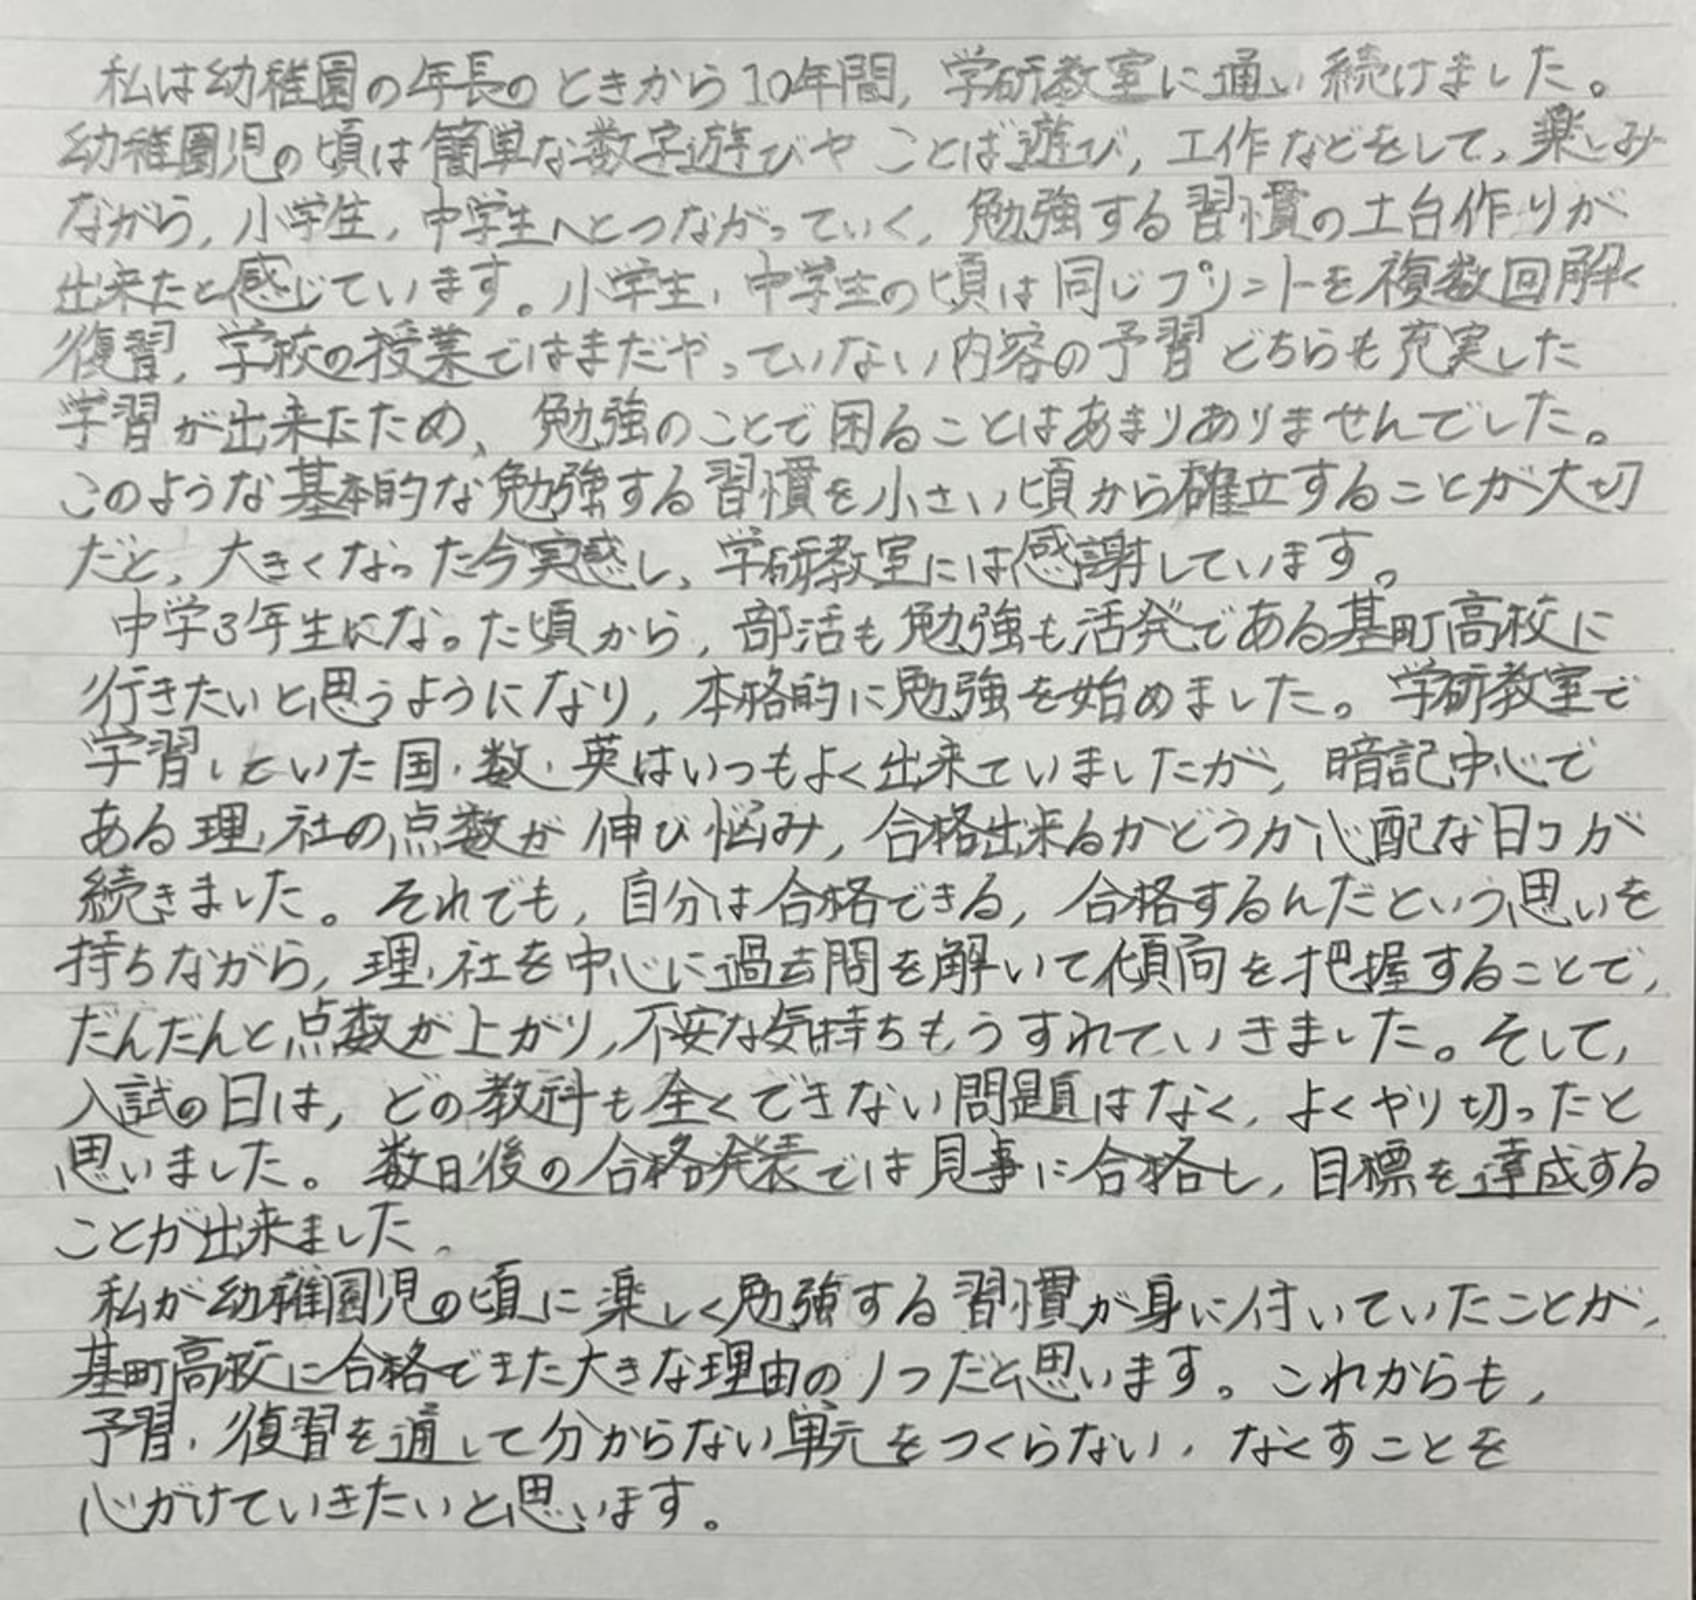 私は幼稚園の年長のときから10年間, 学研教室に通い続けました。
幼稚園児の頃は簡単な数字遊びや ことば遊び, 工作などをして, 楽しみ
ながら, 小学生, 中学生へとつながっていく, 勉強する習慣の土台作りが
出来たと感じています。小学生, 中学生の頃は同じプリントを複数回解く
復習, 学校の授業ではまだやっていない内容の予習 どちらも充実した
学習が出来たため、勉強のことで困ることはあまりありませんでした。
このような基本的な勉強する習慣を小さい頃から確立することが大切
だと, 大きくなった今実感し、学研教室には感謝しています。
中学3年生になった頃から, 部活も勉強も活発である基町高校に
行きたいと思うようになり, 本格的に勉強を始めました。学研教室で
学習していた国・数・英はいつもよく出来ていましたが, 暗記中心で
ある理・社の点数が伸び悩み, 合格出来るかどうか心配な日々が
続きました。それでも, 自分は合格できる, 合格するんだという思いを
持ちながら, 理・社を中心に過去問を解いて傾向を把握することで,
だんだんと点数が上がり, 不安な気持ちもうすれていきました。そして,
入試の日は, どの教科も全くできない問題はなく, よくやり切ったと
思いました。数日後の合格発表では見事に合格し, 目標を達成する
ことが出来ました。
私が幼稚園児の頃に楽しく勉強する習慣が身に付いていたことが,
基町高校に合格できた大きな理由の1つだと思います。これからも,
予習・復習を通して分からない単元をつくらない・なくすことを
心がけていきたいと思います。